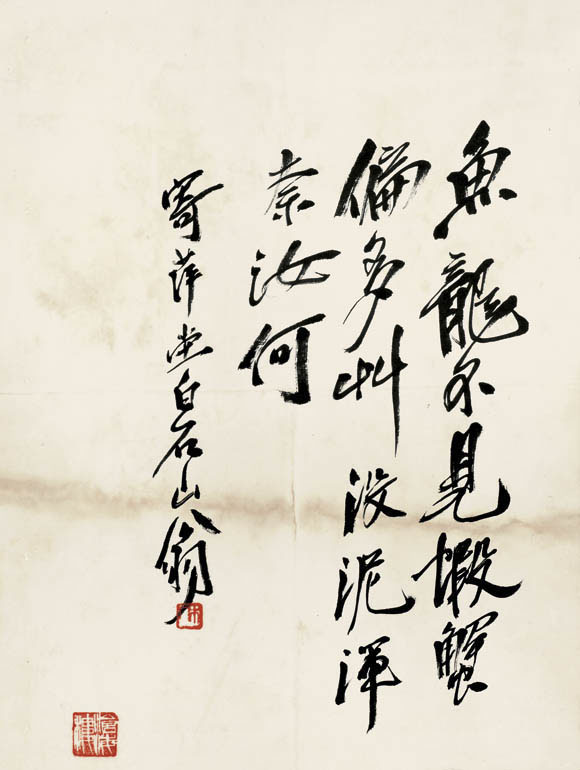 魚龍不見蝦蟹
偏多艸沒泥渾
柰汝何
寄萍堂白石山翁